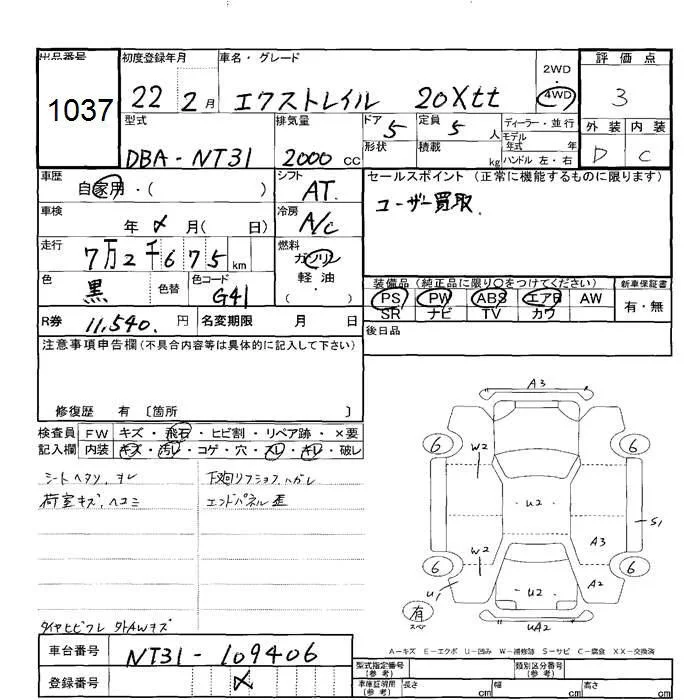 出品番号 初度登録年月 車名・グレード 評価点
1037 22 2月 エクストレイル 20Xtt 2WD 4WD 3
型式 排気量 ドア 定員 ディーラー・並行 外装 内装
DBA-NT31 2000cc 5 5人 モデル年式 年 D C
形状 積載 kg ハンドル 左・右
車歴 シフト セールスポイント(正常に機能するものに限ります)
自家用・( ) AT
車検 冷房 ユーザー買取.
年 メ 月( 日) A/c
走行 燃料
7万2千675km ガソリン
色 色替 色コード 軽油 装備品(純正品に限り○をつけてください) 新車保証書
黒 G41 ・( ) PS PW ABS エアB AW 有・無
SR ナビ TV カワ
R券 11,540.円 名変期限 月 日 後日品
注意事項申告欄(不具合内容等は具体的に記入して下さい)
修復歴 有 〔箇所 〕
検査員 FW キズ・飛石・ヒビ割・リペア跡・×要
記入欄 内装 キズ・汚レ・コゲ・穴・スレ・キレ・破レ
シートヘタリ、ヨレ 下廻リフショク、ハガレ
荷室キズ、ヘコミ エンドパネル歪
タイヤヒビワレ クトAWキズ
A3
6 6
W2
U2
S1
W2 A3
6 6
U1 U2 A2
有 スペア UA2
A-キズ E-エクボ U-凹み W-補修跡 S-サビ C-腐食 XX-交換済
車台番号 NT31-109406
登録番号 メ
型式指定番号(参考) 類別区分番号(参考)
車庫証明用(参考) 長さ cm 幅 cm 高さ cm